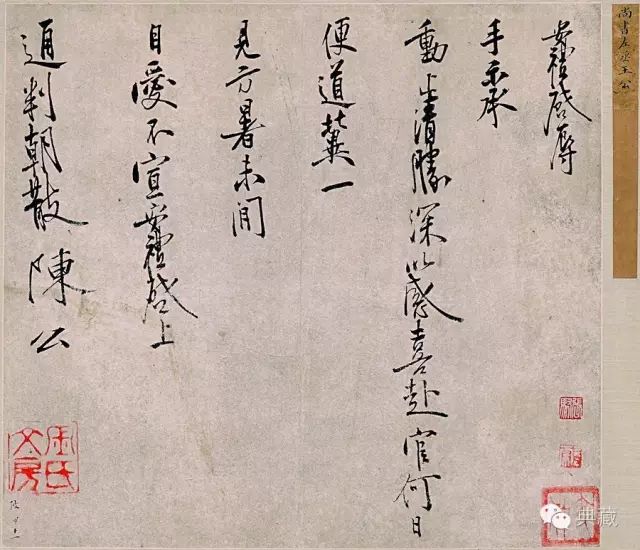 尚書左丞王公
安禮啓辱
手示承
動止清勝深以感喜赴官何日
便道冀一
見方暑未間
自愛不宣安禮啓上
通判朝散陳公
典藏